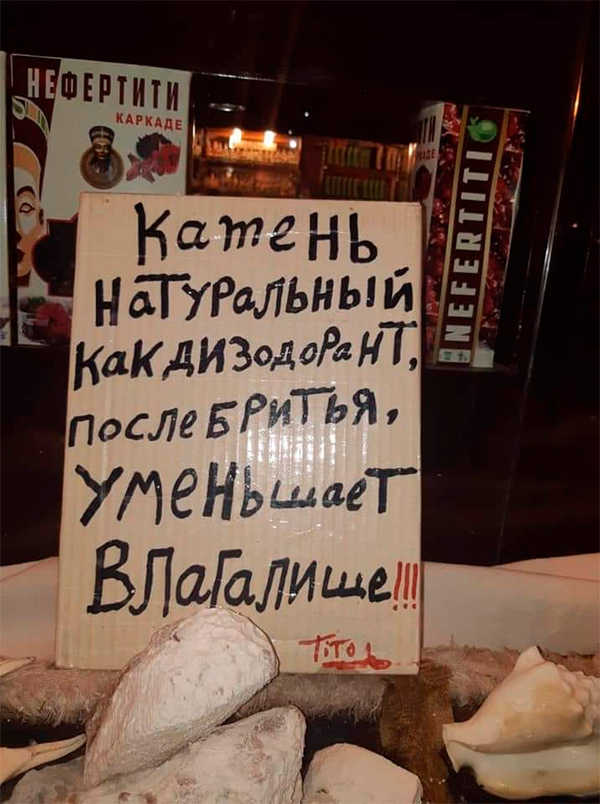 НЕФЕРТИТИ
КАРКАДЕ
NEFERTITI
Камень
натуральный
как дизодорант,
после бритья,
уменьшает
влагалище!!!
Tito